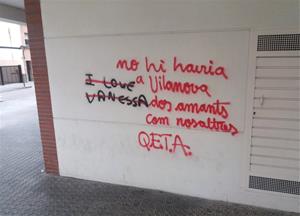 no hi hauria
a Vilanova
I LOVE
VANESSA
dos amants
com nosaltres
Q.E.T.A.